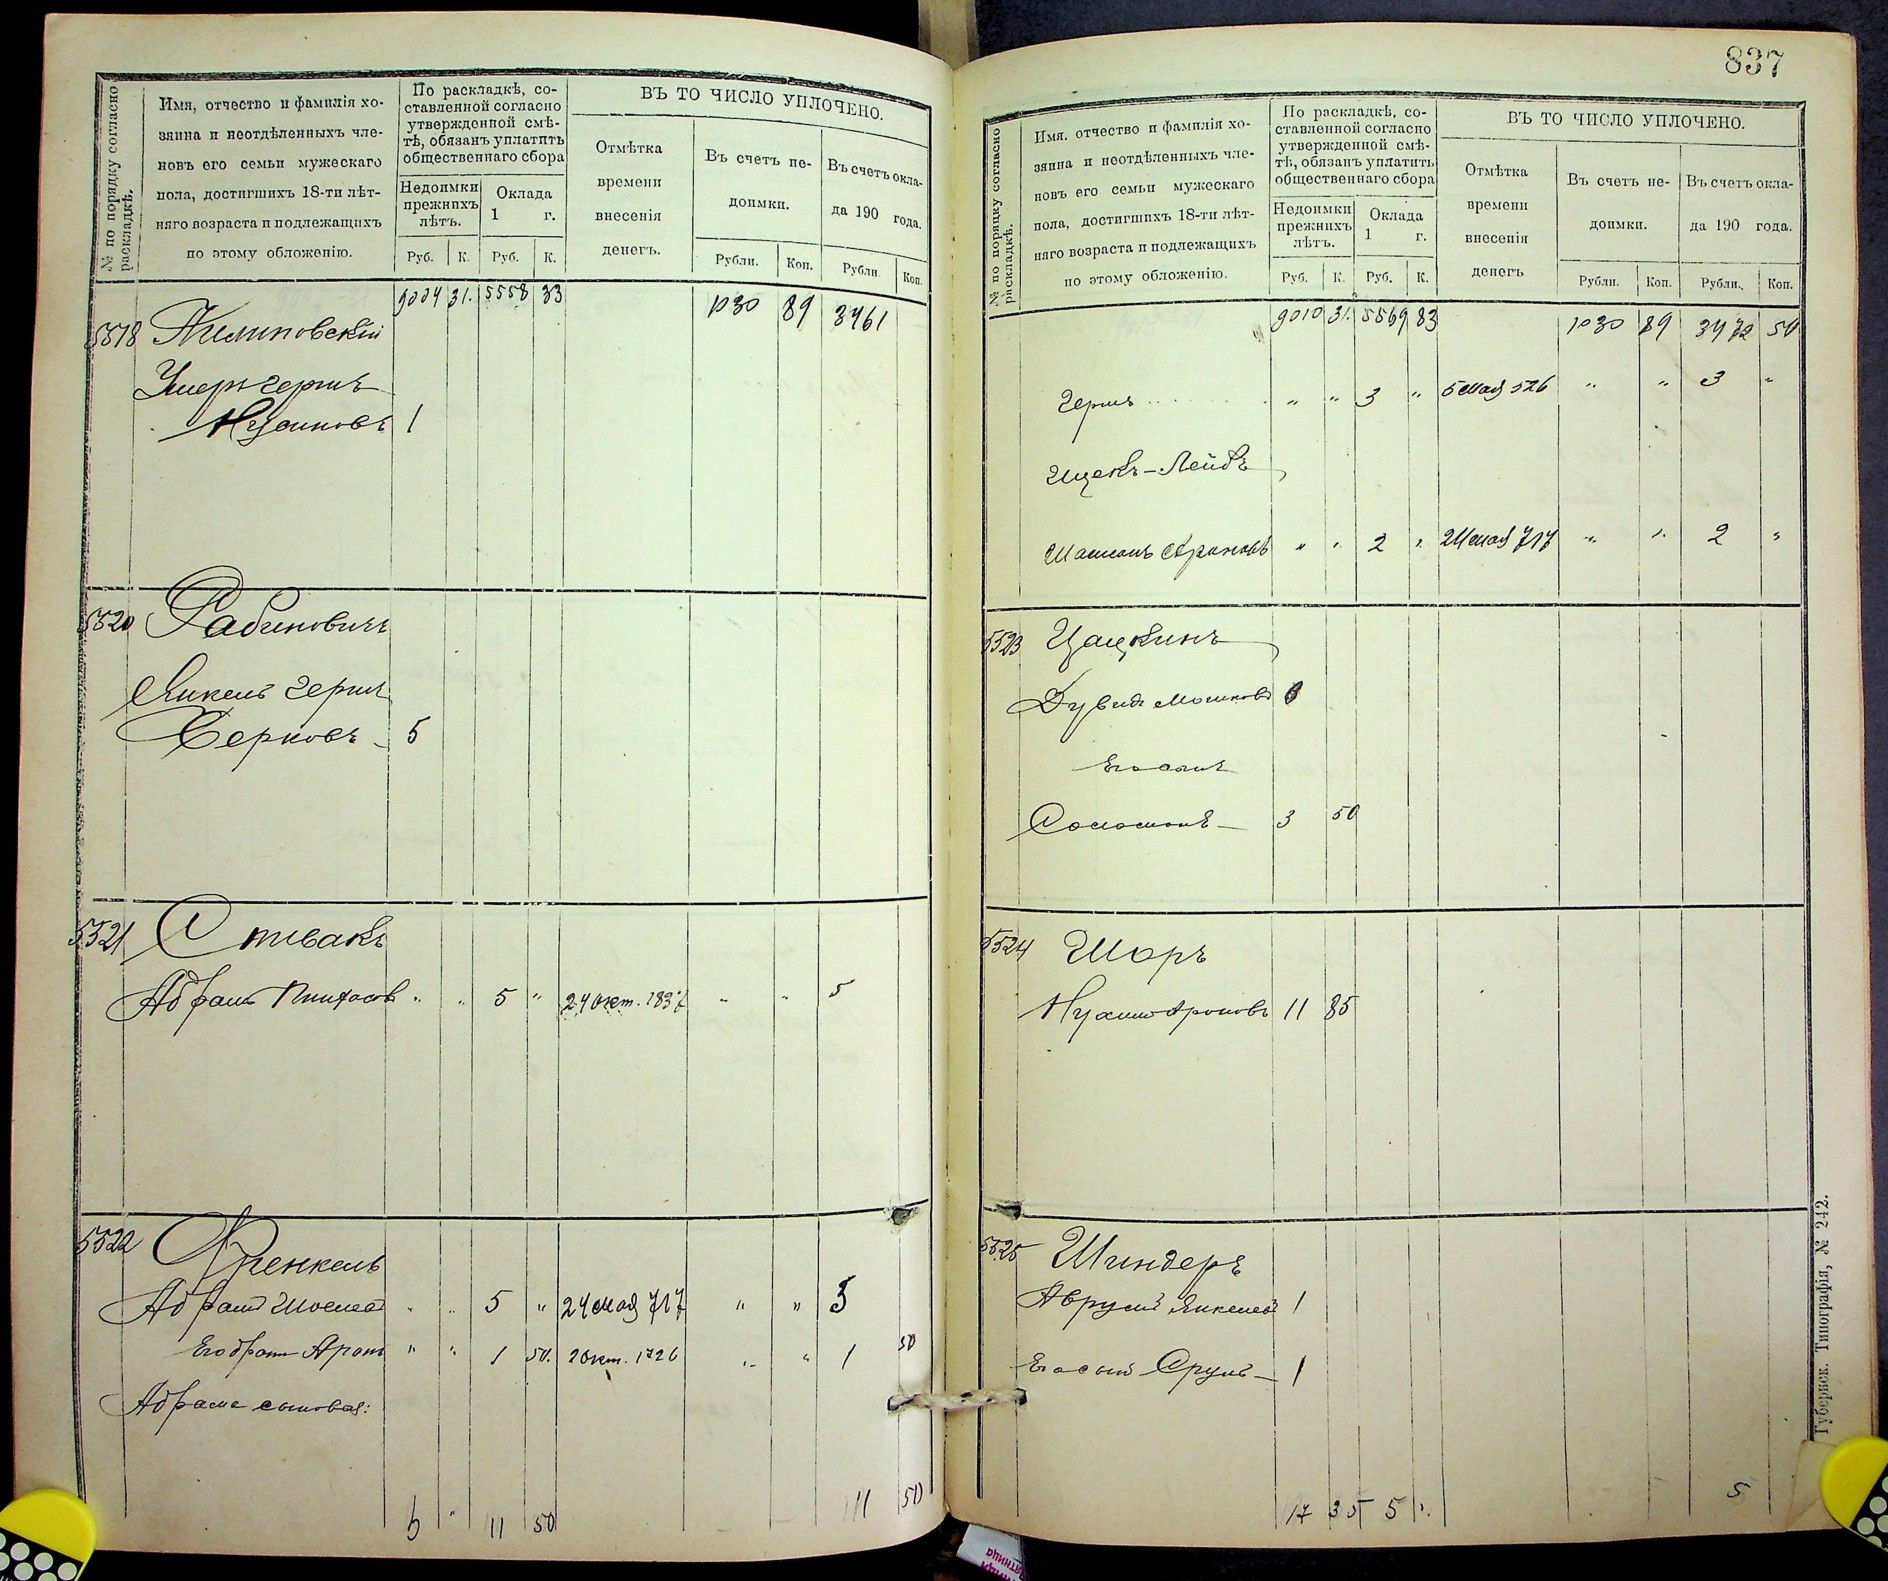 № по порядку согласно раскладкѣ.
Имя, отчество и фамилія хо-
зяина и неотдѣленныхъ чле-
новъ его семьи мужескаго
пола, достигшихъ 18-ти лѣт-
няго возраста и подлежащихъ
по этому обложенію.
По раскладкѣ, со-
ставленной согласно
утвержденной смѣ-
тѣ, обязанъ уплатить
общественнаго сбора
Недоимки
прежнихъ
лѣтъ.
Оклада
1 г.
Руб. К. Руб. К.
ВЪ ТО ЧИСЛО УПЛОЧЕНО.
Отмѣтка
времени
внесенія
денегъ.
Въ счетъ не-
доимки.
Въ счетъ окла-
да 190 года.
Рубли. Коп. Рубли. Коп.
9004 31. 5558 33 1030 89 3461
5518
Умеръ Герш
1
5520 Рабиновичъ
Янкель Герш
Берковъ 5
5521 Спивакъ
Абрамъ Пинхасов " " 5 " 24 окт. 1837 " " 5
5522 Френкель
Абрамъ " " 5 " 24 мая 717 " " 5
Его братъ Аронъ " " 1 50. 2 окт. 1726 " " 1 50
Абрама сыновья:
6 " 11 50 11 50
837
№ по порядку согласно раскладкѣ.
Имя. отчество и фамилія хо-
зяина и неотдѣленныхъ чле-
новъ его семьи мужескаго
пола, достигшихъ 18-ти лѣт-
няго возраста и подлежащихъ
по этому обложенію.
По раскладкѣ, со-
ставленной согласно
утвержденной смѣ-
тѣ, обязанъ уплатить
общественнаго сбора
Недоимки
прежнихъ
лѣтъ.
Оклада
1 г.
Руб. К. Руб. К.
ВЪ ТО ЧИСЛО УПЛОЧЕНО.
Отмѣтка
времени
внесенія
денегъ
Въ счетъ не-
доимки.
Въ счетъ окла-
да 190 года.
Рубли. Коп. Рубли. Коп.
9010 31. 5569 83 1030 89 3472 50
Герш " " 3 " 5 мая 526 " " 3 "
Ицекъ-Лейбъ
" " 2 " 24 мая 717 " " 2 "
5523 Цацкинъ
Дувидъ Мошковъ
Его сынъ
Соломонъ 3 50
5524 Шоръ
Нухимъ Ароновъ 11 85
5525 Шиндеръ
Аврумъ Янкелевъ 1
Его сынъ Сруль 1
17 35 5 " 5
Губернск. Типографія, № 242.